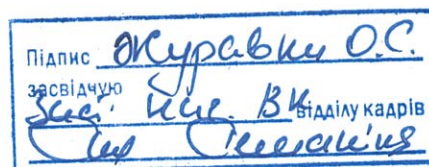 Підпис Журавки О.С.
засвідчую
Заст. нач. ВК відділу кадрів